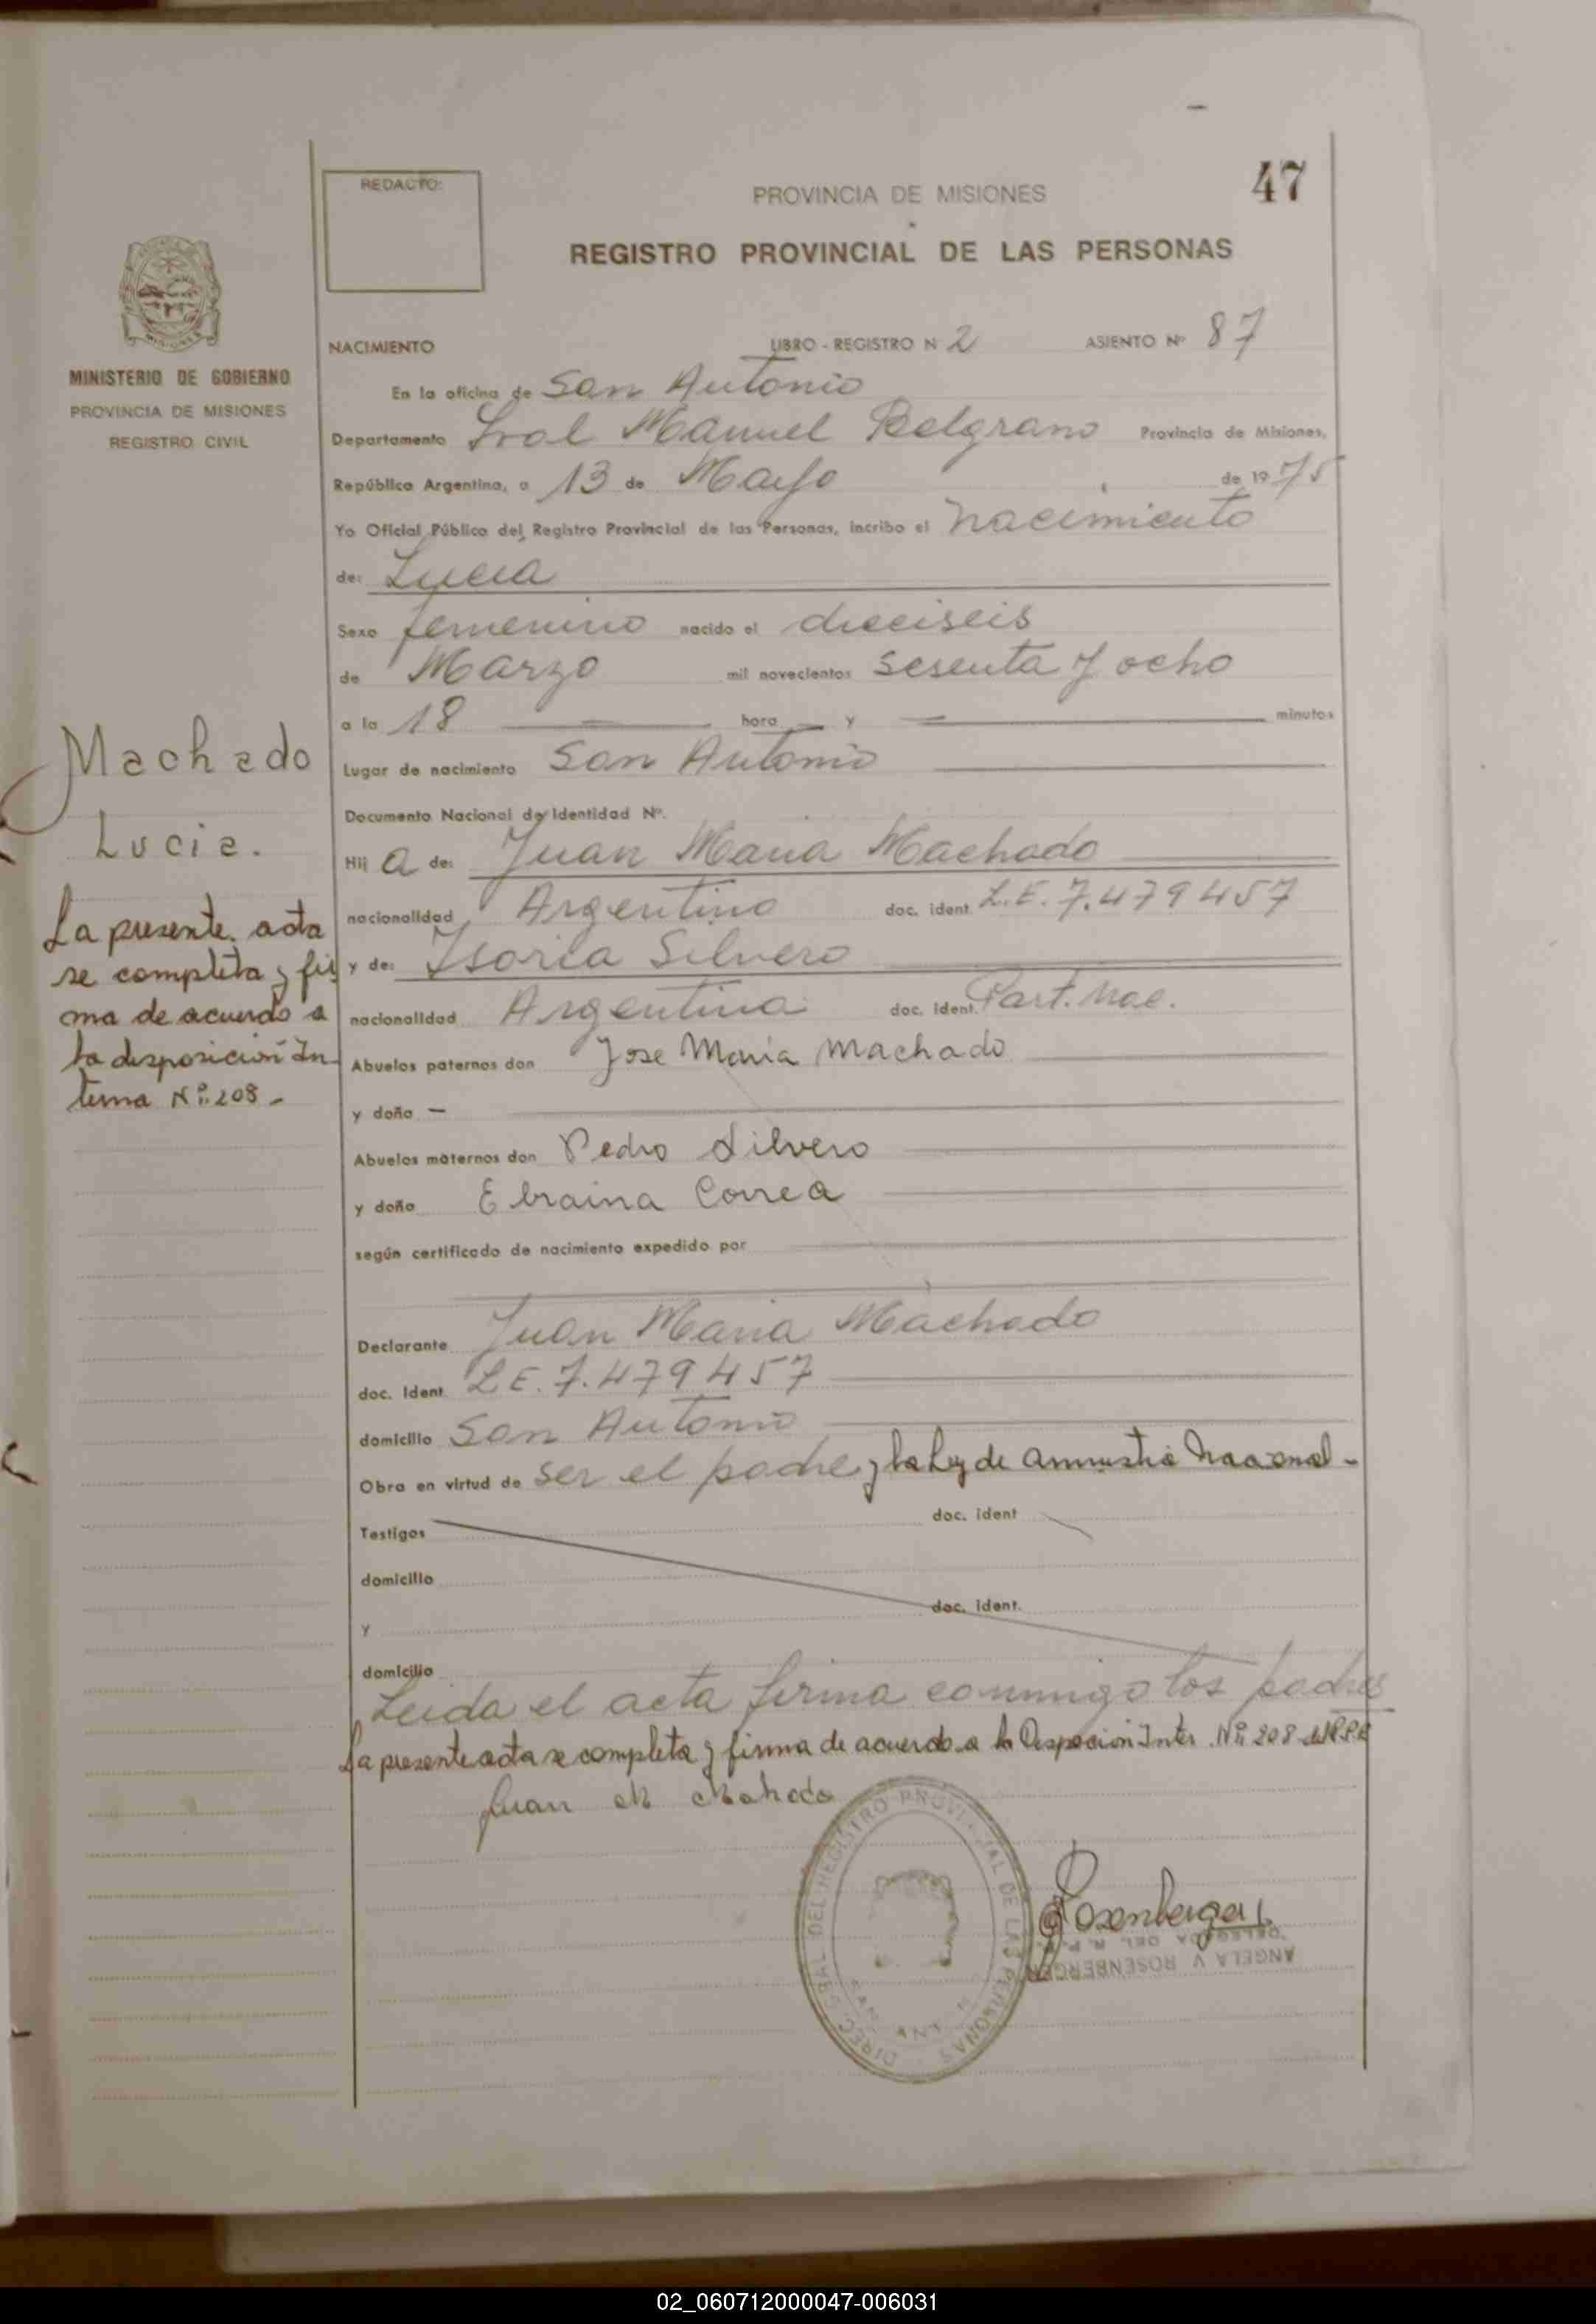 47
REDACTO:
PROVINCIA DE MISIONES
REGISTRO PROVINCIAL DE LAS PERSONAS
MINISTERIO DE GOBIERNO
PROVINCIA DE MISIONES
REGISTRO CIVIL
NACIMIENTO LIBRO - REGISTRO N 2 ASIENTO Nº 87
En la oficina de San Antonio
Departamento Gral Manuel Belgrano Provincia de Misiones,
República Argentina, a 13 de Mayo de 1975
Yo Oficial Público del Registro Provincial de las Personas, incribo el nacimiento
de: Lucia
Sexo femenino nacido el dieciseis
de Marzo mil novecientos sesenta y ocho
a la 18 hora y minutos
Lugar de nacimiento San Antonio
Documento Nacional de Identidad Nº.
Hij a de: Juan Maria Machado
nacionalidad Argentino doc. ident. L.E. 7.479457
y de: Isorla Silvero
nacionalidad Argentina doc. ident. Part. Nac.
Abuelos paternos don Jose Maria Machado
y doña —
Abuelos maternos don Pedro Silvero
y doña Ebraina Correa
según certificado de nacimiento expedido por
Declarante Juan Maria Machado
doc. Ident. L.E. 7.479457
domicilio San Antonio
Obra en virtud de ser el padre y la Ley de Amnistia Nacional -
Testigos doc. ident
domicilio
y doc. ident.
domicilio
Leida el acta firma conmigo los padres
La presente acta se completa y firma de acuerdo a la Disposición Inter. Nº: 208 del R.P.P.
Juan M Machado
Rosenberger
DELEGADA DEL R. P. P.
ANGELA V ROSENBERGER
DIREC GRAL DEL REGISTRO PROVINCIAL DE LAS PERSONAS
Machado
Lucia.
La presente acta
se completa y fir
ma de acuerdo a
la disposición In
terna Nº: 208 -
02_060712000047-006031